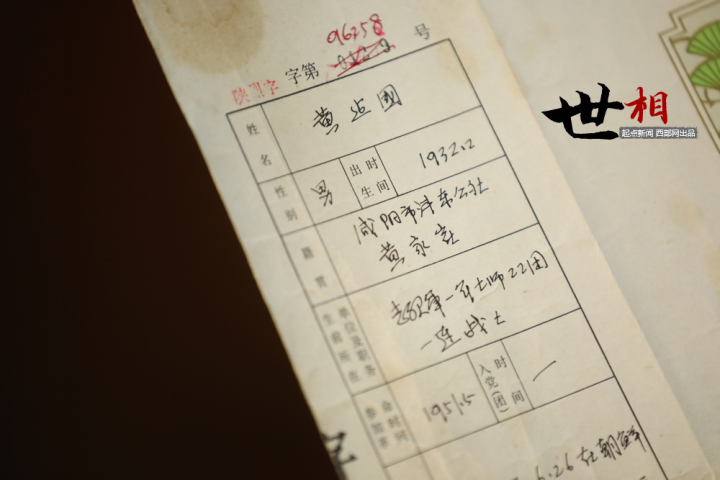 96258
陕烈字 字第 号
姓名 黄志國
性别 男 出生时间 1932.2
籍贯 咸阳市沣东公社
黄家寨
生前所在单位及职务 志愿军一军七师22团
一连战士
参加革命时间 1951.5 入党(团)时间 一
6.26在朝鲜
世相
起点新闻 西部网出品